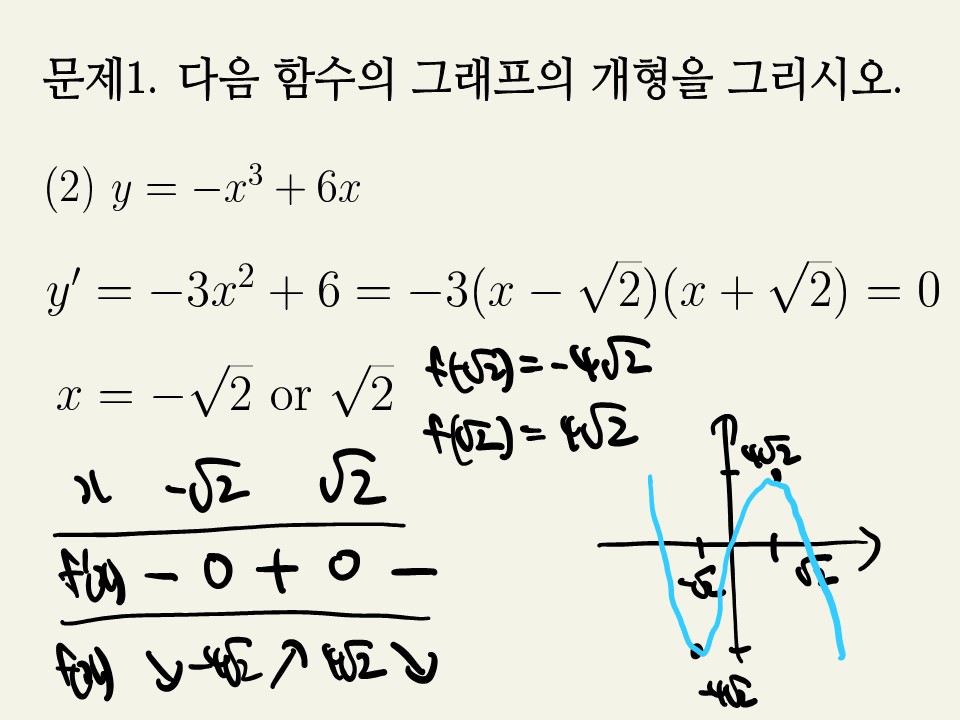 문제1. 다음 함수의 그래프의 개형을 그리시오.
(2) y = −x³ + 6x
y′ = −3x² + 6 = −3(x − √2)(x + √2) = 0
x = −√2 or √2
f(-√2) = -4√2
f(√2) = 4√2
x -√2 √2
f'(x) - 0 + 0 -
f(x) ↘ -4√2 ↗ 4√2 ↘
4√2
-√2 √2
-4√2